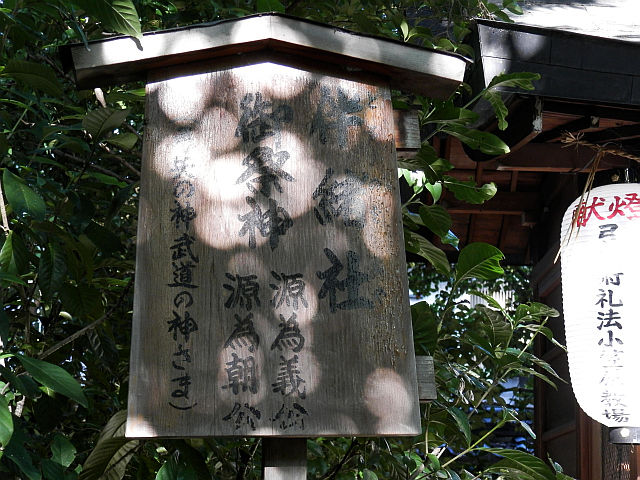 伴緒社
御祭神 源為義公
源為朝公
の神武道の神さま)
献燈
弓
礼法小笠原教場